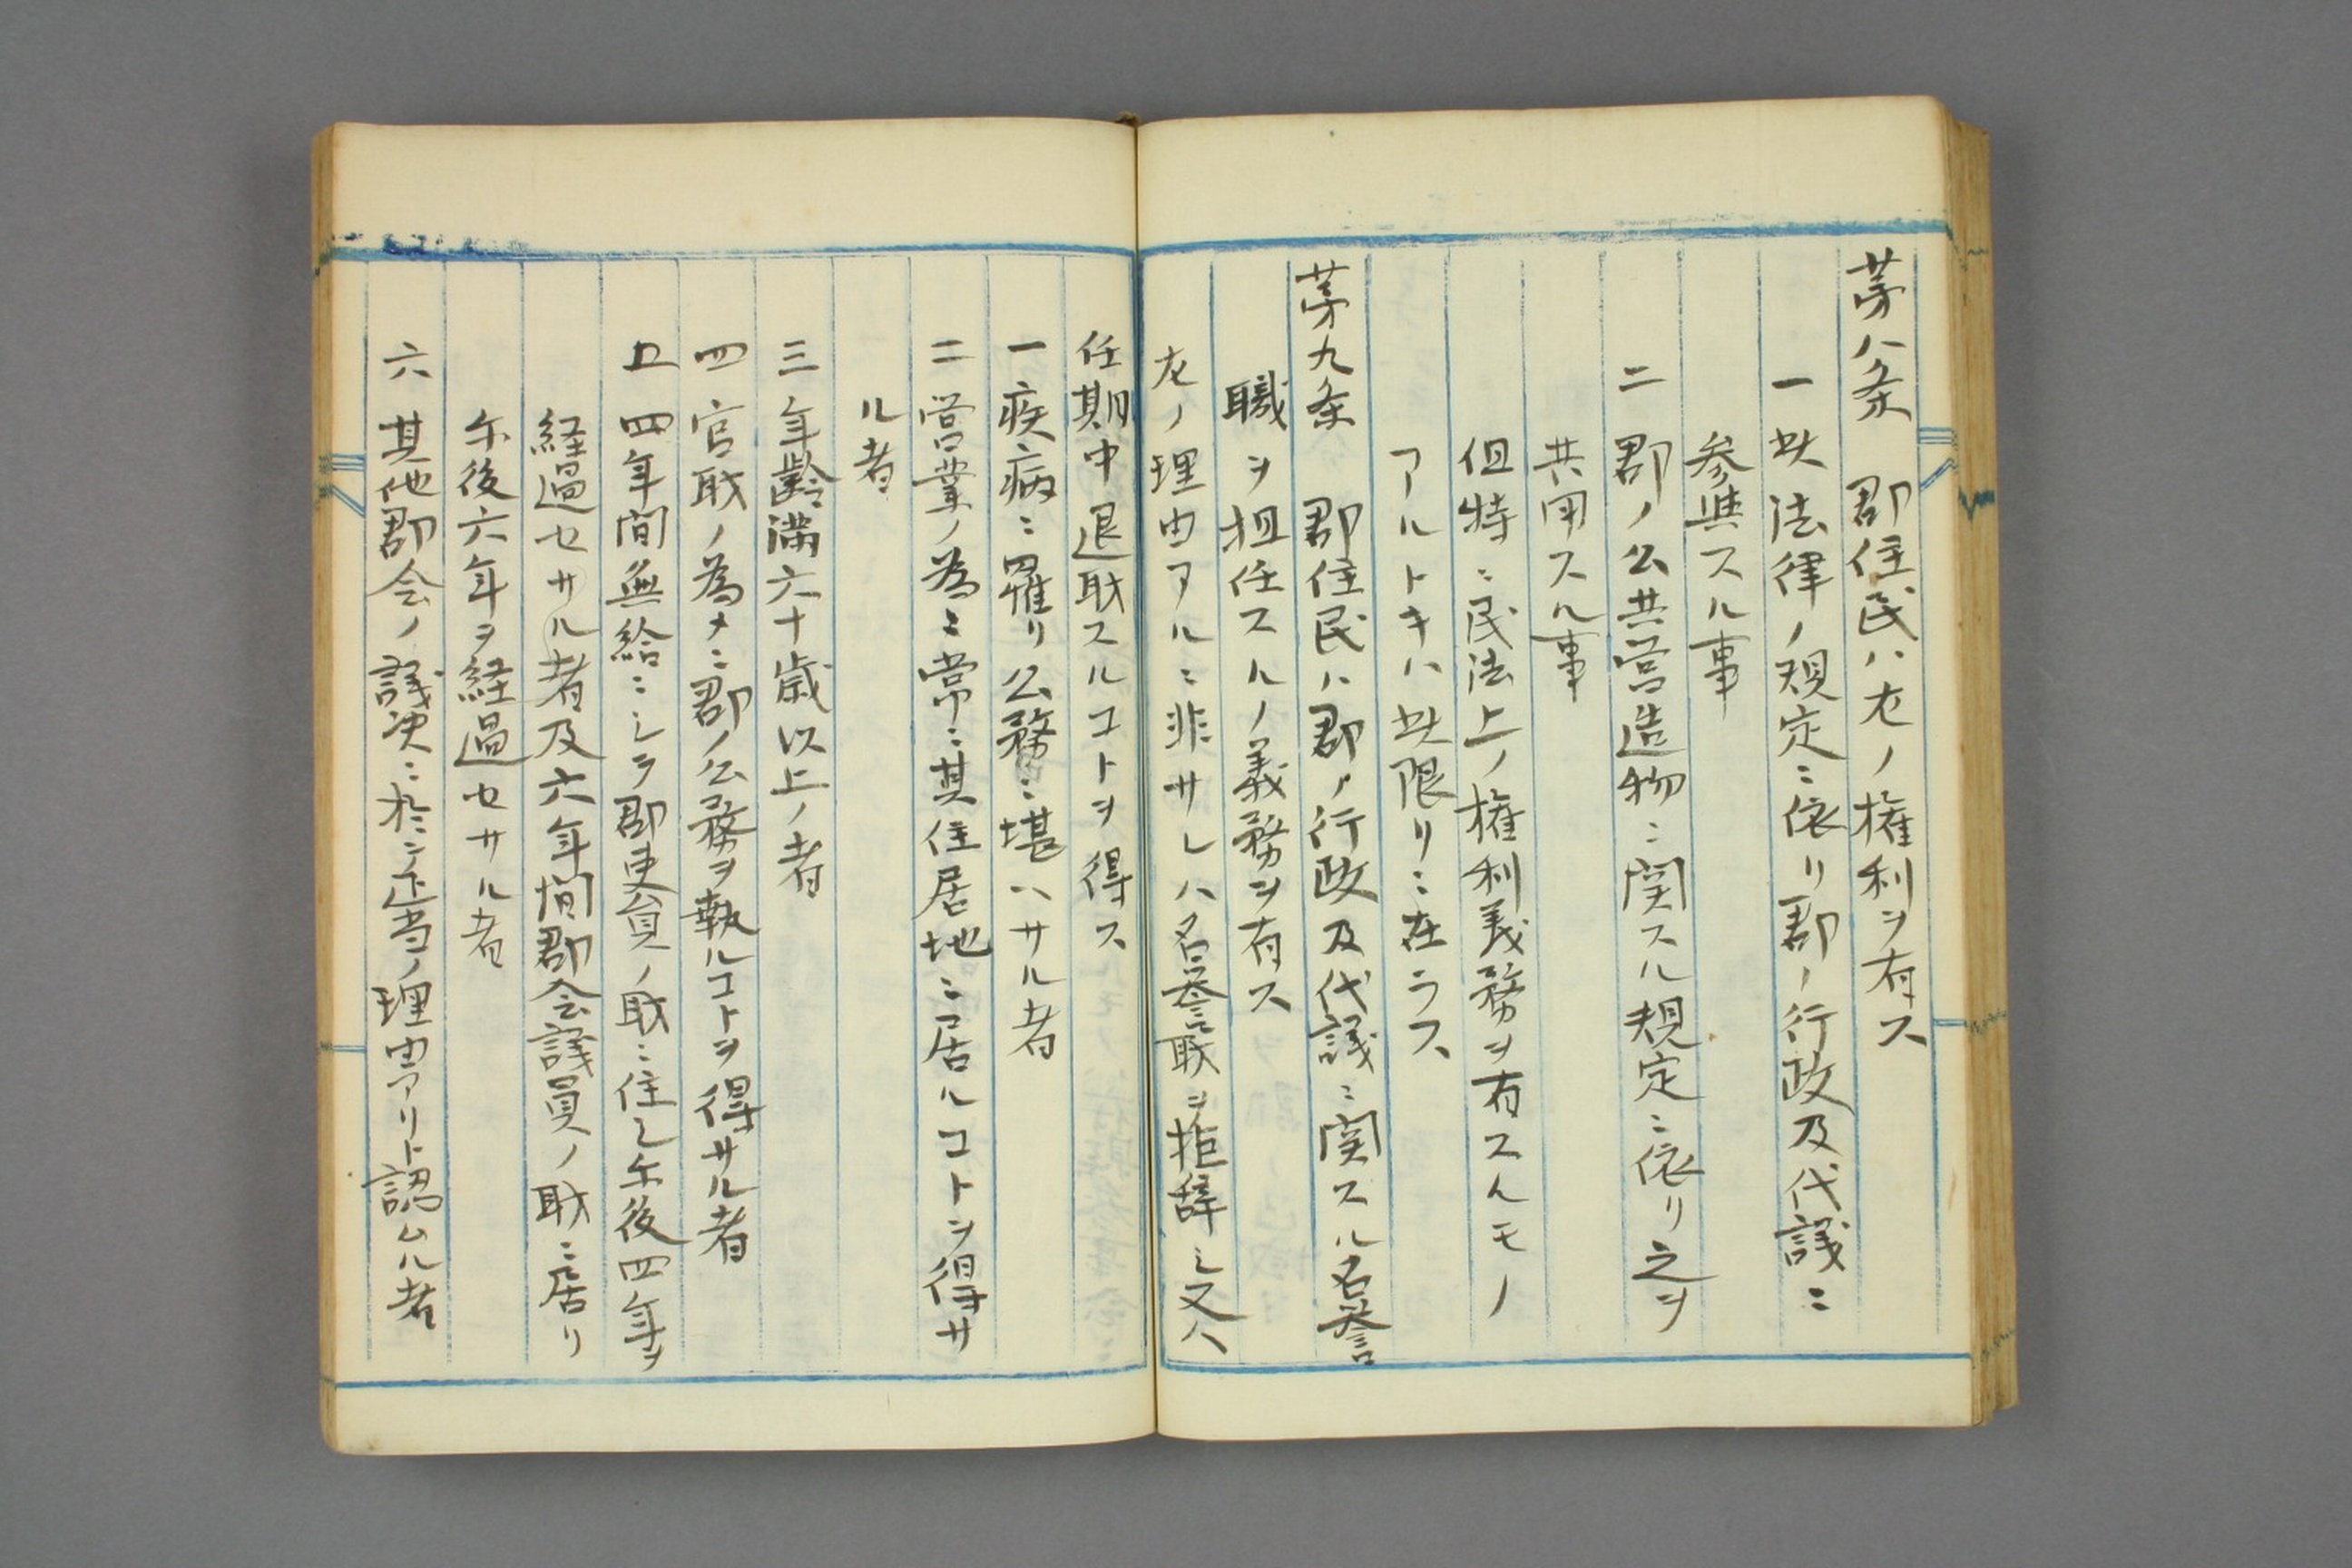 第八条 郡住民ハ左ノ権利ヲ有ス
一 此法律ノ規定ニ依リ郡ノ行政及代議ニ
参与スル事
二 郡ノ公共営造物ニ関スル規定ニ依リ之ヲ
共用スル事
但特ニ民法上ノ権利義務ヲ有スルモノ
アルトキハ此限リニ在ラス
第九条 郡住民ハ郡ノ行政及代議ニ関スル名誉
職ヲ担任スルノ義務ヲ有ス
左ノ理由アルニ非サレハ名誉職ヲ拒辞シ又ハ
任期中退職スルコトヲ得ス
一 疾病ニ罹リ公務ニ堪ハサル者
二 営業ノ為ニ常ニ其住居地ニ居ルコトヲ得サ
ル者
三 年齢満六十歳以上ノ者
四 官職ノ為メニ郡ノ公務ヲ執ルコトヲ得サル者
五 四年間無給ニシテ郡吏員ノ職ニ任シ尓後四年ヲ
経過セサル者及六年間郡会議員ノ職ニ居リ
尓後六年ヲ経過セサル者
六 其他郡会ノ議決ニ於テ正当ノ理由アリト認ムル者